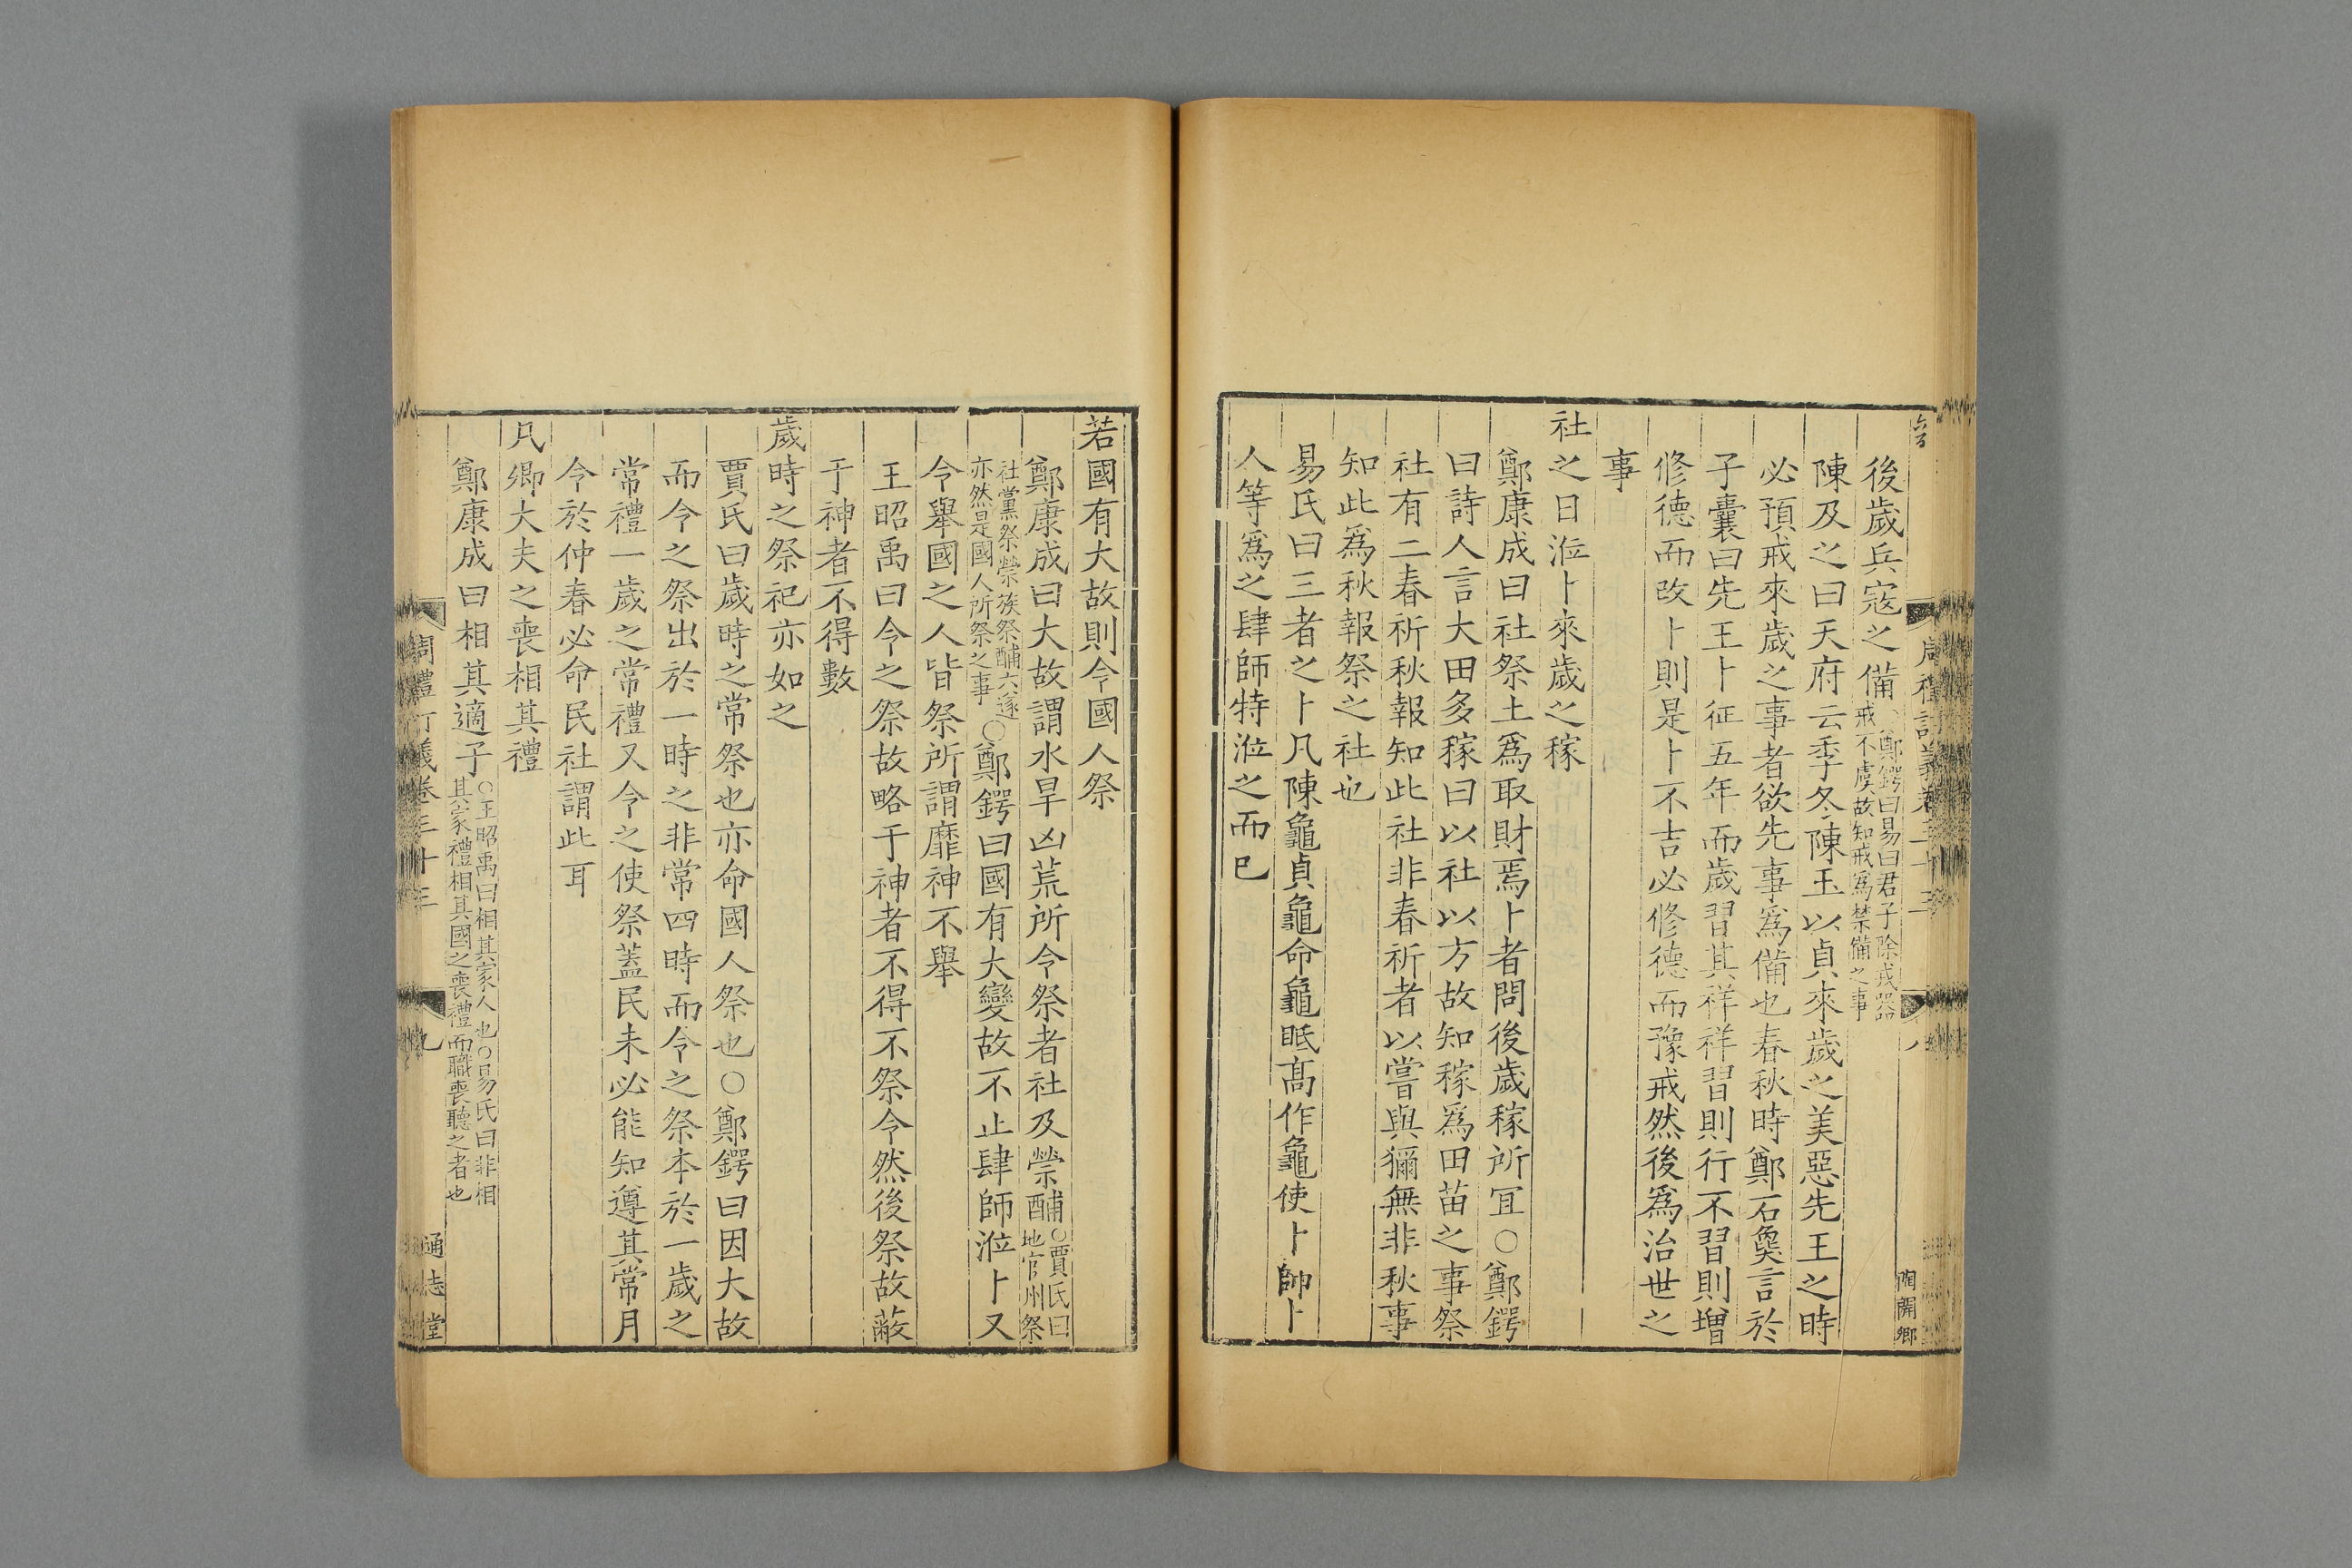 後歲兵寇之備○鄭鍔曰易曰君子除戎器戒不虞故知戒爲禁備之事
陳及之曰天府云季冬陳玉以貞來歲之美惡先王之時
必預戒來歲之事者欲先事爲備也春秋時鄭石㚟言於
子囊曰先王卜征五年而歲習其祥祥習則行不習則增
修德而改卜則是卜不吉必修德而豫戒然後爲治世之
事
社之日涖卜來歲之稼
鄭康成曰社祭土爲取財焉卜者問後歲稼所宜○鄭鍔
曰詩人言大田多稼曰以社以方故知稼爲田苗之事祭
社有二春祈秋報知此社非春祈者以嘗與獮無非秋事
知此爲秋報祭之社也
易氏曰三者之卜凡陳龜貞龜命龜眡高作龜使卜帥卜
人等爲之肆師特涖之而已
周禮訂義卷三十三
八
陶開鄉
若國有大故則令國人祭
鄭康成曰大故謂水旱凶荒所令祭者社及禜酺○賈氏曰地官州祭
社黨祭禜族祭酺六遂亦然是國人所祭之事○鄭鍔曰國有大變故不止肆師涖卜又
令舉國之人皆祭所謂靡神不舉
王昭禹曰令之祭故略于神者不得不祭令然後祭故蔽
于神者不得數
歲時之祭祀亦如之
賈氏曰歲時之常祭也亦命國人祭也○鄭鍔曰因大故
而令之祭出於一時之非常四時而令之祭本於一歲之
常禮一歲之常禮又令之使祭蓋民未必能知遵其常月
令於仲春必命民社謂此耳
凡卿大夫之喪相其禮
鄭康成曰相其適子○王昭禹曰相其家人也○易氏曰非相其家禮相其國之喪禮而職喪聽之者也
周禮訂義卷三十三
九
通志堂